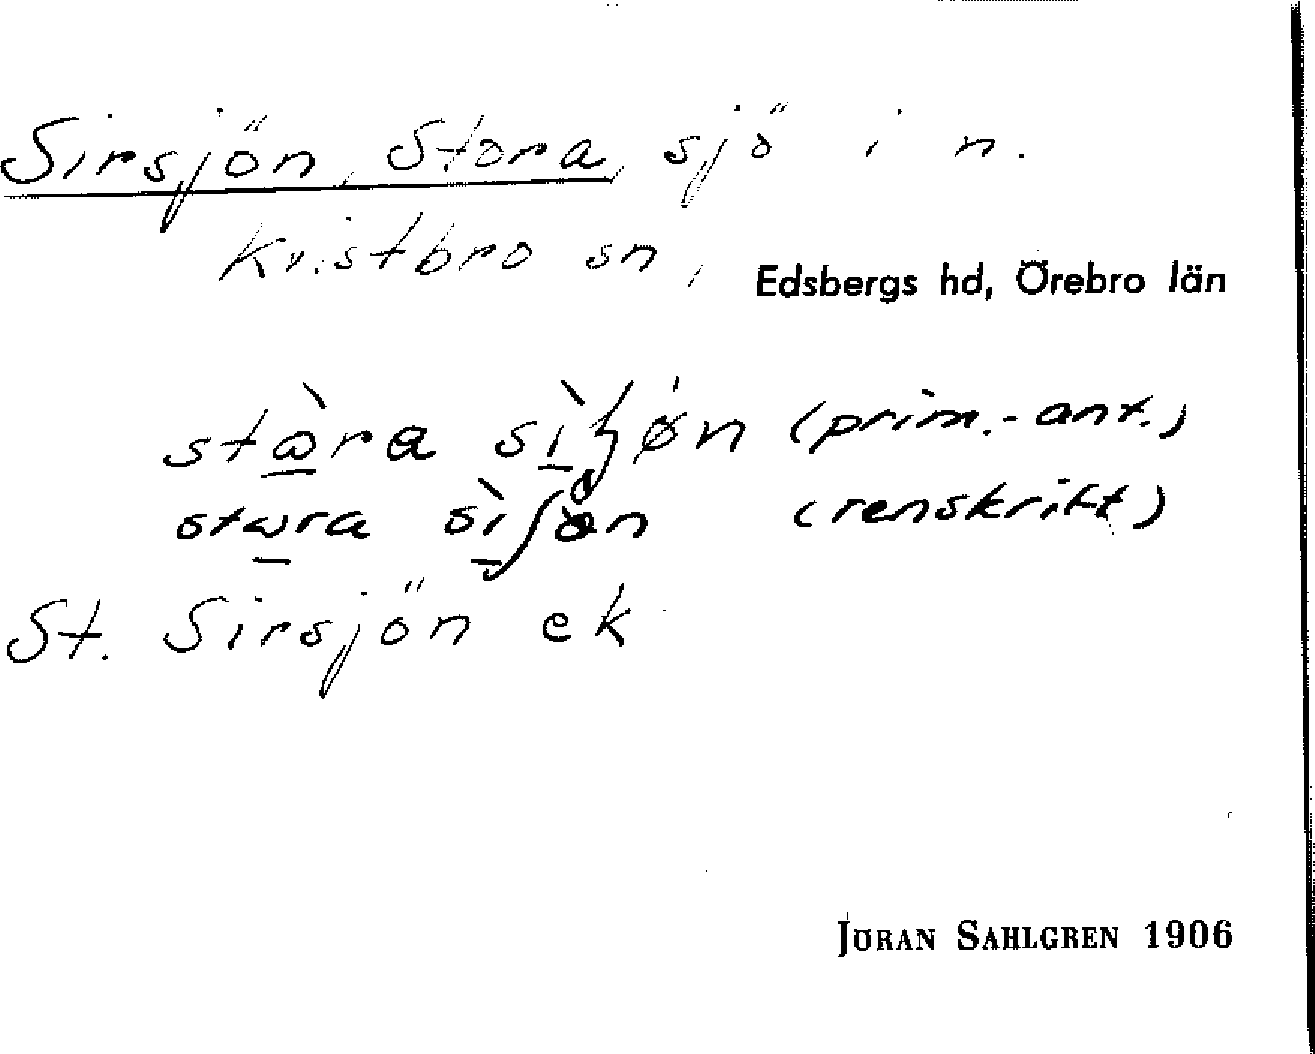 Sirsjön, Stora, sjö i n.
Kvistbro sn, Edsbergs hd, Örebro län
(prim.-ant.)
(renskrift)
St. Sirsjön ek
JÖRAN SAHLGREN 1906